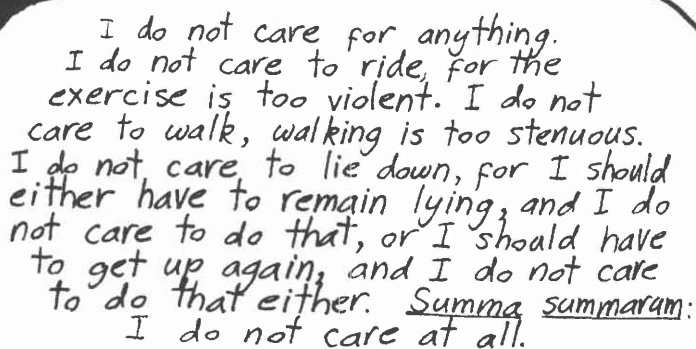 I do not care for anything.
I do not care to ride, for the
exercise is too violent. I do not
care to walk, walking is too stenuous.
I do not care to lie down, for I should
either have to remain lying, and I do
not care to do that, or I should have
to get up again, and I do not care
to do that either. Summa summarum:
I do not care at all.